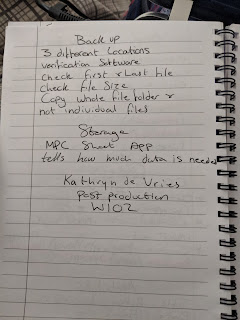 Back up
3 different locations
verification Software
Check first & Last file
Check file Size
Copy whole file folder &
not individual files
Storage
MPC Shoot App
tells how much data is needed
Kathryn de Vries
Post production
W102